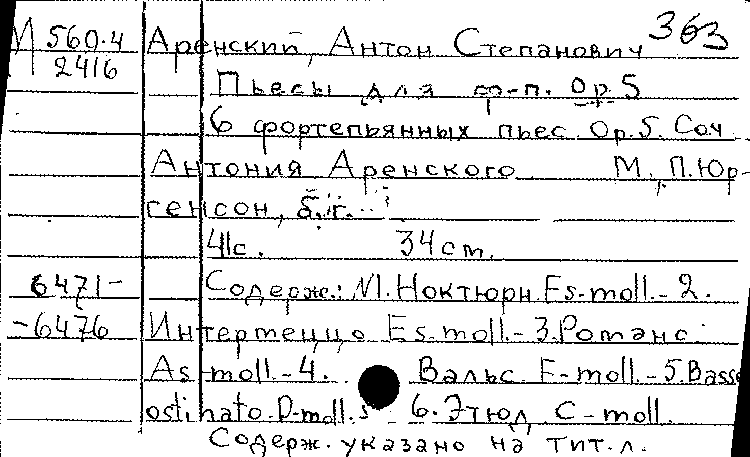 363
М 560.4 Аренский, Антон Степанович
2416
Пьесы для ф-п. Op.5
6 фортепьянных пьес. Op.5. Соч.
Антония Аренского М. П.Юр-
генсон, б.г.
41с. 34cm.
6471- Содерж.: N1. Ноктюрн Es-moll.-2.
-6476 Интермеццо Es-moll.-3.Романс
As-moll.-4. Вальс F-moll.-5.Basso
ostinato.D-moll. 6.Этюд C-moll.
Содерж. указано на тит.л.